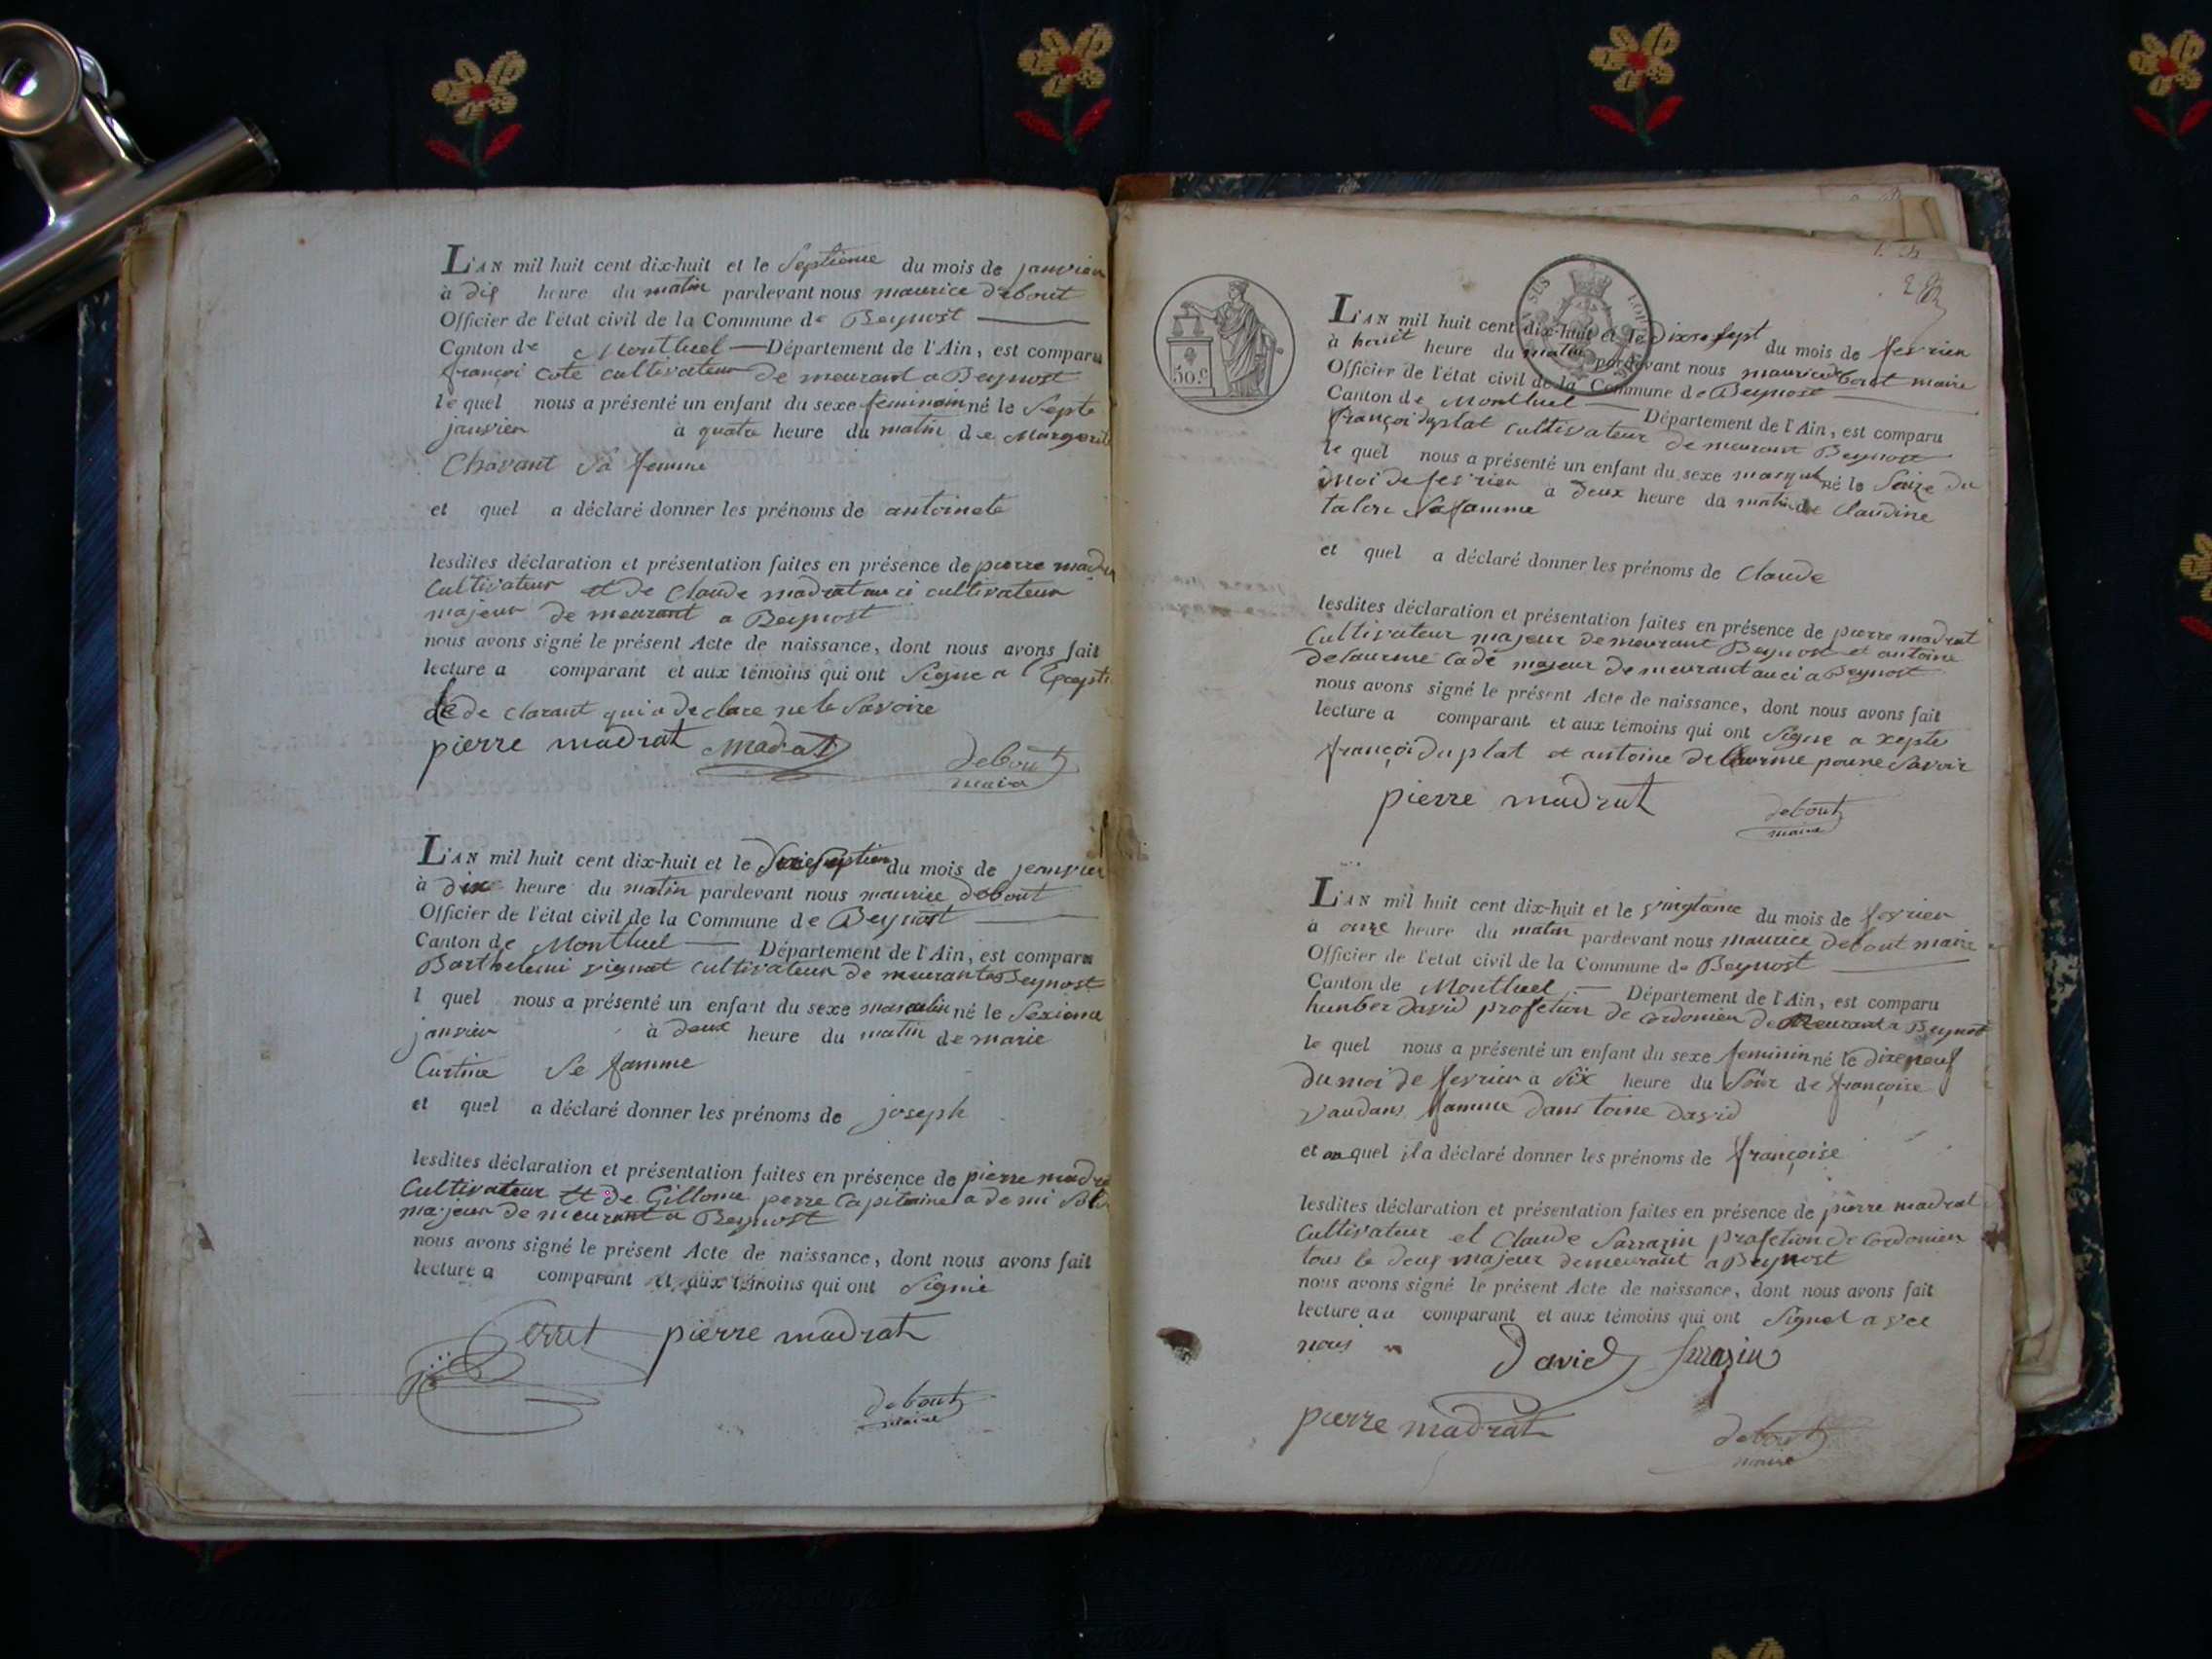 L'AN mil huit cent dix-huit et le Septieme du mois de janvier
à dix heure du matin pardevant nous maurice debout
Officier de l'état civil de la Commune de Beynost
Canton de Montluel Département de l'Ain, est comparu
françoi cote cultivateur demeurant a Beynost
le quel nous a présenté un enfant du sexe feminain né le Septe
janvier a quatre heure du matin de Margerit
Chavant Sa femme
et quel a déclaré donner les prénoms de antoinete
lesdites déclaration et présentation faites en présence de pierre madra
Cultivateur et de Claude madrat auci cultivateur
majeur demeurant a Beynost
nous avons signé le présent Acte de naissance, dont nous avons fait
lecture a comparant et aux témoins qui ont Signe a
de clarant qui a declare ne le Savoire
pierre madrat madrat debout
maire
L'AN mil huit cent dix-huit et le du mois de jenvier
à dix heure du matin pardevant nous maurice debout
Officier de l'état civil de la Commune de Beynost
Canton de Montluel Département de l'Ain, est comparu
Barthelemi vignat cultivateur demeurant a Beynost
l quel nous a présenté un enfant du sexe masculin né le Sexieme
janvier à deux heure du matin de marie
Curtine Se famme
et quel a déclaré donner les prénoms de joseph
lesdites déclaration et présentation faites en présence de pierre madra
Cultivateur et de Gillome perre Capitaine a demi Sol
majeur demeurant a Beynost
nous avons signé le présent Acte de naissance, dont nous avons fait
lecture a comparant et aux témoins qui ont Signé
Perret pierre madrat
debout
maire
50.c
L'AN mil huit cent dix-huit et le dixesept du mois de fevrier
à heuit heure du matin pardevant nous maurice debout maire
Officier de l'état civil de la Commune de Beynost
Canton de Montluel Département de l'Ain, est comparu
françoi duplat cultivateur demeurant Beynost
le quel nous a présenté un enfant du sexe masqul né le Seize du
moi de fevrier a deux heure du matin de Claudine
talere Sa famme
et quel a déclaré donner les prénoms de Claude
lesdites déclaration et présentation faites en présence de pierre madrat
Cultivateur majeur demeurant Beynost et antoine
delaurme cadé majeur demeurant auci a Beynost
nous avons signé le présent Acte de naissance, dont nous avons fait
lecture a comparant et aux témoins qui ont Signe a xepte
françoi duplat et antoine delaurme pour ne Savoir
pierre madrat debout
maire
L'AN mil huit cent dix-huit et le vingtaime du mois de fevrier
à onze heure du matin pardevant nous maurice debout maire
Officier de l'état civil de la Commune de Beynost
Canton de Montluel Département de l'Ain, est comparu
humber David profetion de cordonier demeurant a Beynost
le quel nous a présenté un enfant du sexe feminin né le dixeneuf
du moi de fevrier a Six heure du Soir de françoise
vaudans famme dans toine david
et au quel il a déclaré donner les prénoms de françoise
lesdites déclaration et présentation faites en présence de pierre madrat
Cultivateur et Claude Sarrazin profetion de Cordonier
tous le deux majeur demeurant a Beynost
nous avons signé le présent Acte de naissance, dont nous avons fait
lecture au comparant et aux témoins qui ont Signet avec
nous David Sarrazin
pierre madrat debout
maire